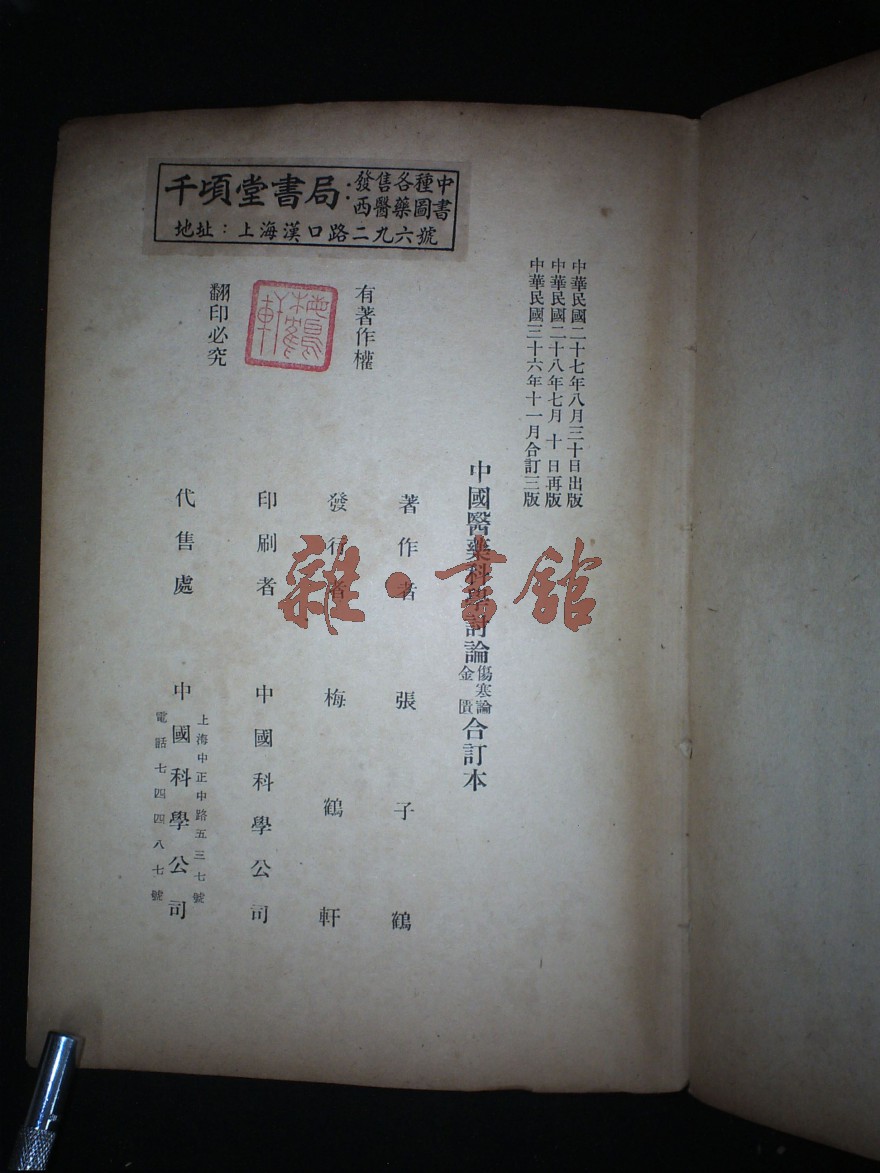 千頃堂書局：發售各種中西醫藥圖書
地址：上海漢口路二九六號
中華民國二十七年八月三十日出版
中華民國二十八年七月十日再版
中華民國三十六年十一月合訂三版
中國醫藥科學討論傷寒論金匱合訂本
有著作權
梅鶴軒
翻印必究
著作者 張子鶴
發行者 梅鶴軒
印刷者 中國科學公司
代售處 中國科學公司
上海中正中路五三七號
電話七四四八七號
雜·書館